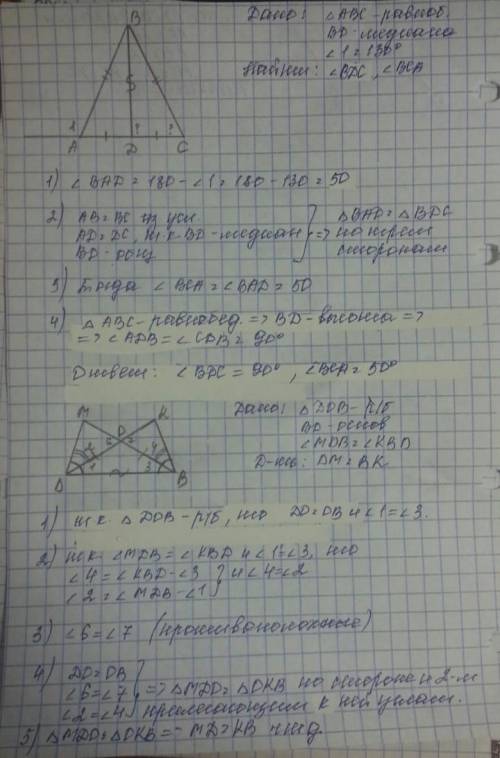 B
1
A
D
C
? ?
Дано: △ABC-равноб.
BD-медиана
∠1=130°
Найти: ∠BDC, ∠BCA
1) ∠BAD=180-∠1=180-130=50
2) AB=BC из усл.
AD=DC, т.к BD-медиан
BD-общ
} => △BAD=△BDC
по трем
сторонам
3) Тогда ∠BCA=∠BAD=50
4) △ABC-равнобед. => BD-высота =>
=> ∠ADB=∠CDB=90°
Ответ: ∠BDC=90°, ∠BCA=50°
M
K
O
D
B
2 4
1 3
Дано: △DOB-р/б
BD-основ
∠MDB=∠KBD
Д-ть: DM=BK
1) т.к. △DOB-р/б, то DO=OB и ∠1=∠3.
2) т.к. ∠MDB=∠KBD и ∠1=∠3, то
∠4=∠KBD-∠3
∠2=∠MDB-∠1
} и ∠4=∠2
3) ∠6=∠7 (противоположные)
4) DO=OB
∠6=∠7
∠2=∠4
} => △MDO=△OKB по стороне и 2-м
прилегающим к ней углам.
5) △MDO=△OKB => MD=KB чтд.